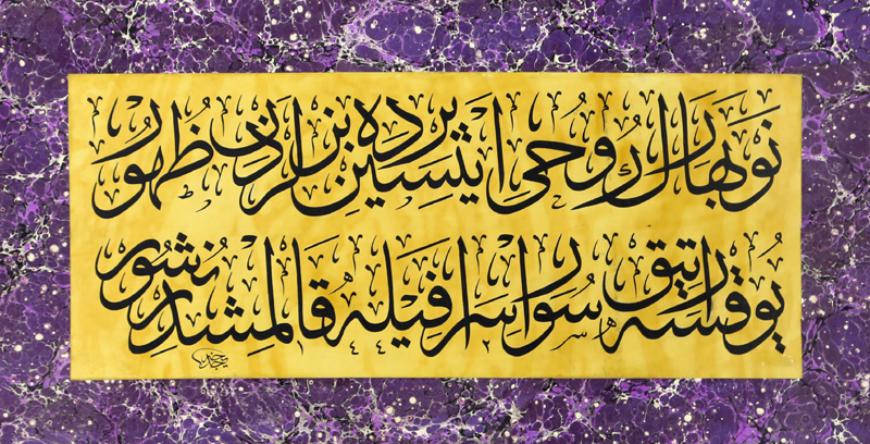 نوبهارك روحى ايتسين يرده بزلردن ظهور
يوقسه ارتيق سور اسرافيله قالمشدر نشور
١٤٤٢